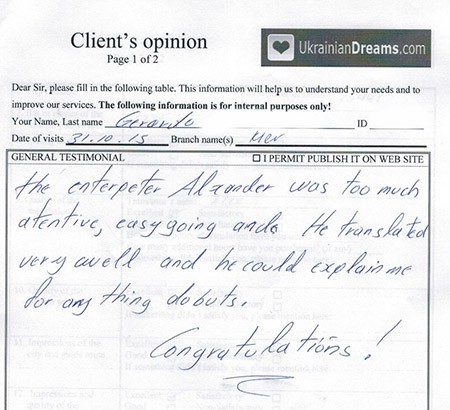 Client's opinion
Page 1 of 2
UkrainianDreams.com
Dear Sir, please fill in the following table. This information will help us to understand your needs and to
improve our services. The following information is for internal purposes only!
Your Name, Last name Gerardo ID
Date of visits 31.10.15 Branch name(s)
GENERAL TESTIMONIAL ☐ I PERMIT PUBLISH IT ON WEB SITE
the enterpeter Alxander was too much
atentive, easygoing and. He translated
very well and he could explain me
for any thing dobuts.
Congratulations!